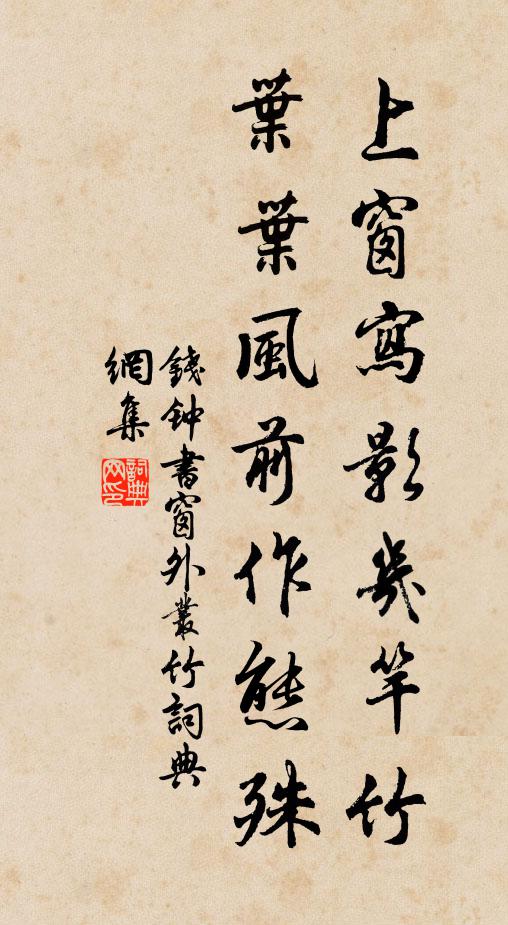 上窗寫影幾竿竹
葉葉風前作態殊
錢钟書窗外叢竹詞典
網集
詞典网印